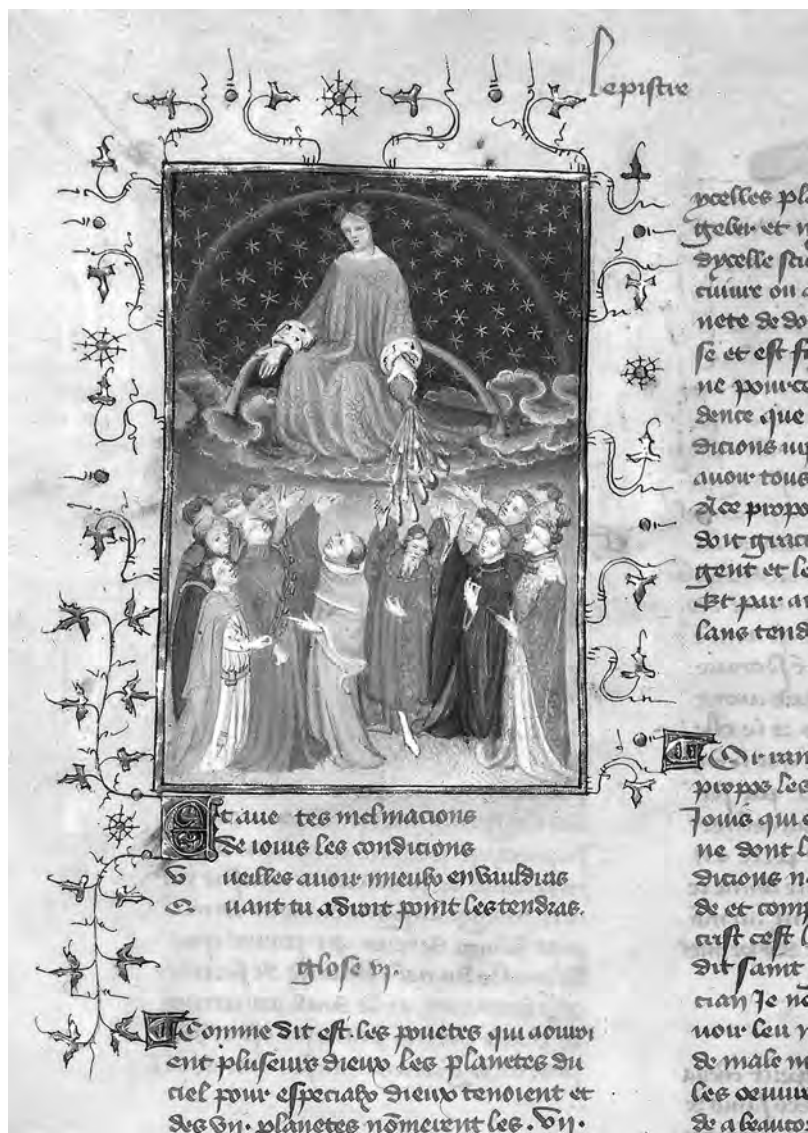 Lepistre
Et aue tes inclinacions
De iouis les condicions
V ueilles auoir mieulx en vauldras
Q uant tu a droit point les tendras.
glose vi.
Comme dit est. les pouetes qui aouroi
ent pluseurs dieux les planetes du
ciel pour especialx dieux tenoient et
des vii. planetes nõmerent les .vii.
ycelles pla
geber et n
dycelle scie
cuiure ou a
nete de do
se et est fi
ne pource
dence que
dicions iup
auoir tous
A ce propo
doit graci
gent et le
Et par
lans tend
Or ram
propos les
Jouis qui e
ne dont l
dicions n
de et comp
crist cest l
dit saint
cian Je ne
uoir leu n
de male m
les oeuure
de a beauco